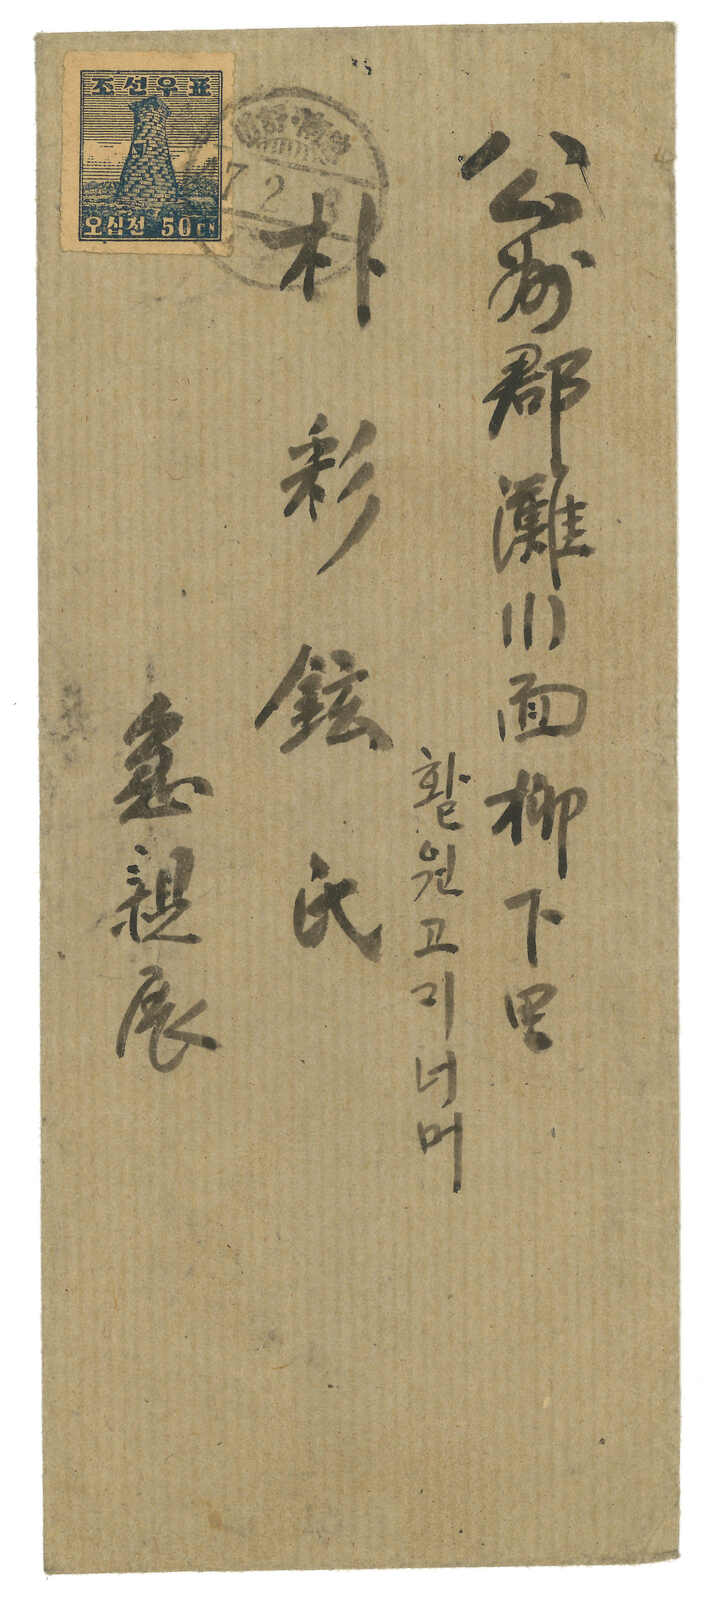 公州郡灘川面柳下里
활원고리너머
朴彩鉉氏
急親展
조선우표
오십전 50CN
7.2